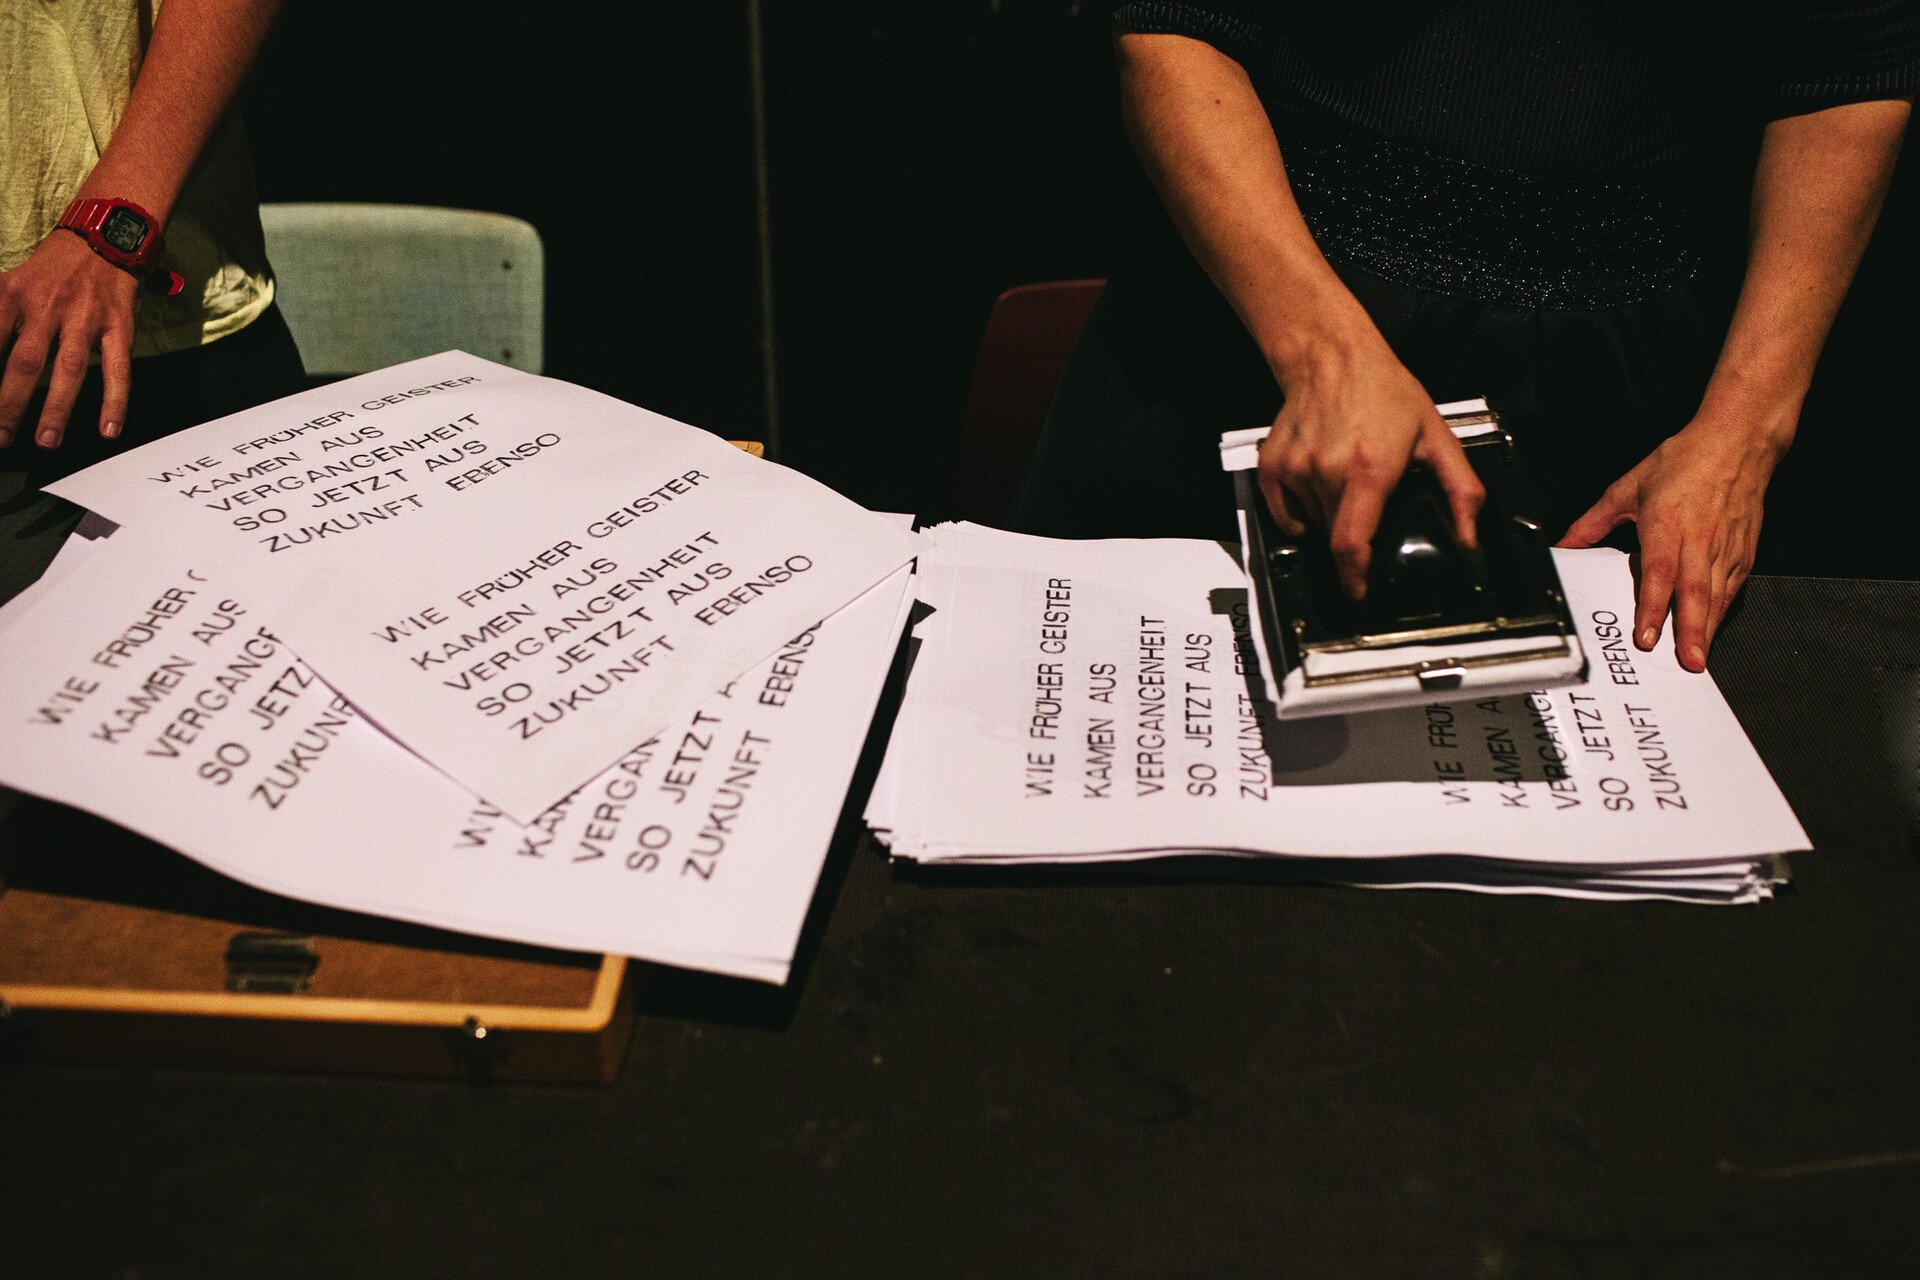 WIE FRÜHER GEISTER
KAMEN AUS
VERGANGENHEIT
SO JETZT AUS
ZUKUNFT EBENSO
WIE FRÜHER GEISTER
KAMEN AUS
VERGANGENHEIT
SO JETZT AUS
ZUKUNFT EBENSO
WIE FRÜHER
KAMEN AUS
SO
SO JETZT
ZUKUNFT EBENSO
WIE FRÜHER GEISTER
KAMEN AUS
VERGANGENHEIT
SO JETZT AUS
ZUKUNFT EBENSO
WIE
KAMEN
SO JETZT
ZUKUNFT EBENSO